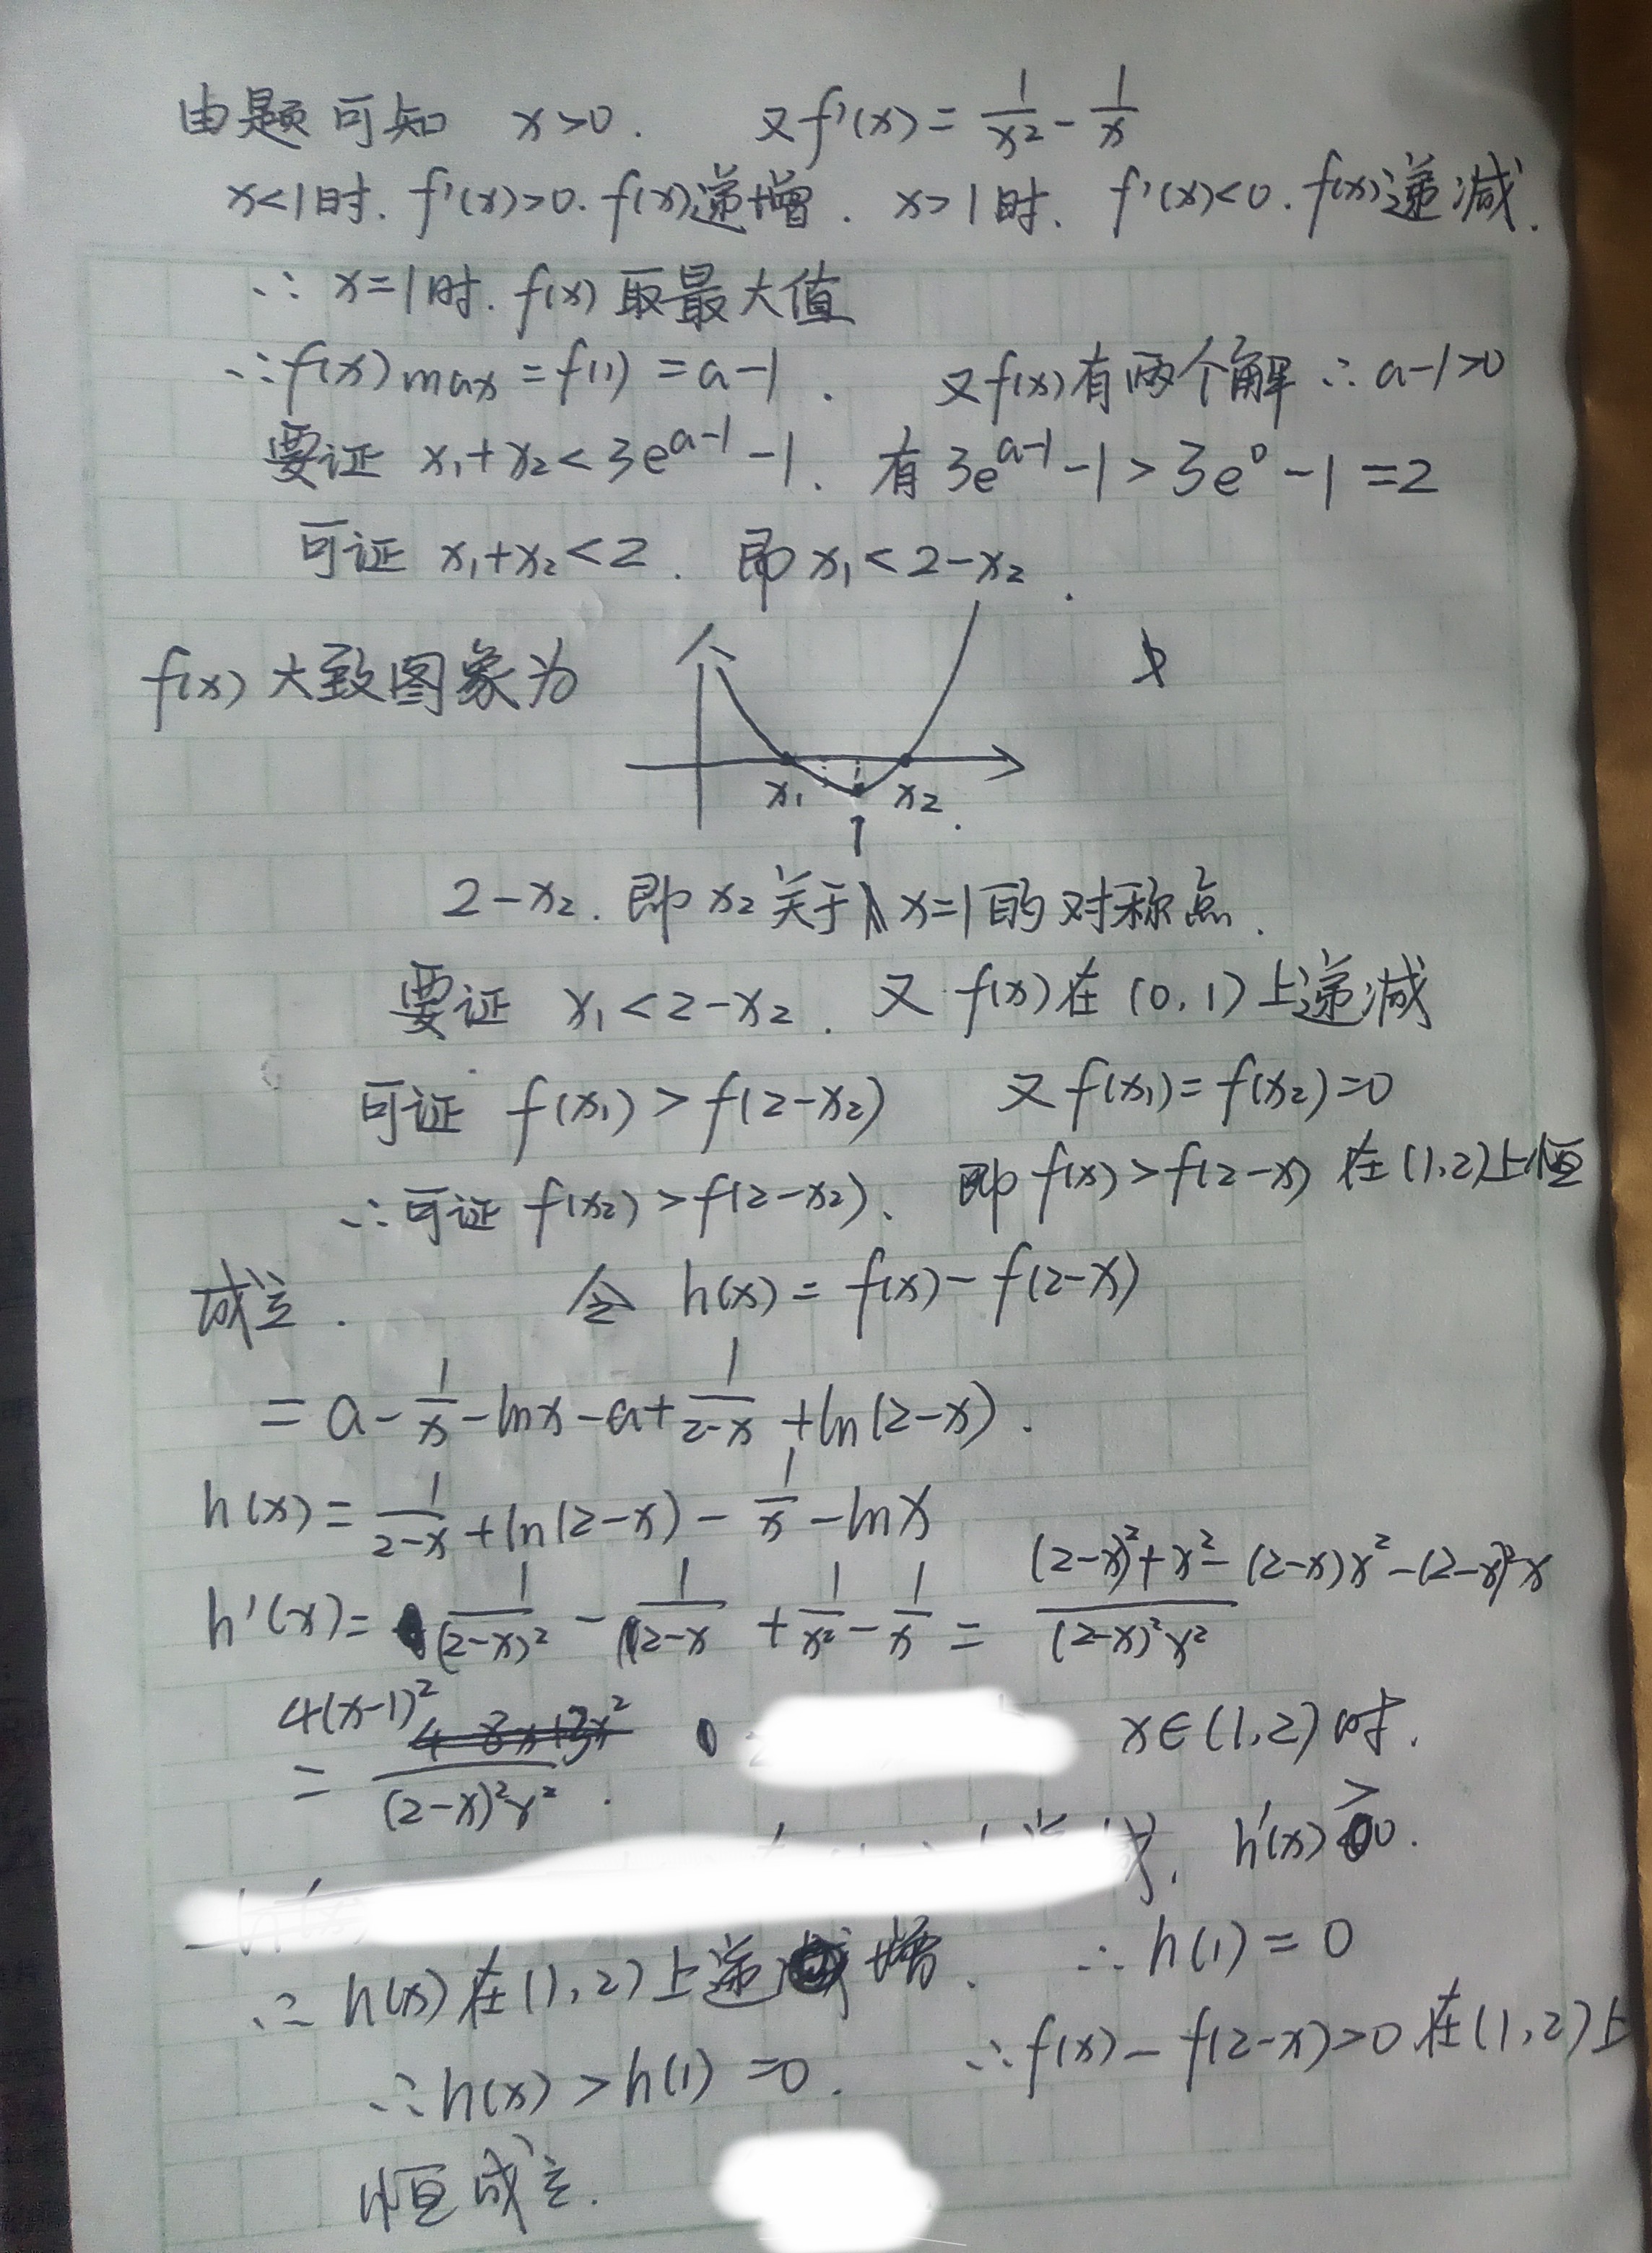 由题可知 x>0. 又f'(x)=1/x²-1/x
x<1时.f'(x)>0.f(x)递增.x>1时.f'(x)<0.f(x)递减.
∴x=1时.f(x)取最大值
∴f(x)max=f(1)=a-1. 又f(x)有两个解∴a-1>0
要证 x₁+x₂<3e^(a-1)-1.有3e^(a-1)-1>3e⁰-1=2
可证 x₁+x₂<2.即x₁<2-x₂.
f(x)大致图象为
x₁ x₂
1
2-x₂.即x₂关于x=1的对称点.
要证 x₁<2-x₂.又f(x)在(0,1)上递减
可证 f(x₁)>f(2-x₂) 又f(x₁)=f(x₂)=0
∴可证f(x₂)>f(2-x₂).即f(x)>f(2-x)在(1,2)上恒
成立. 令h(x)=f(x)-f(2-x)
=a-1/x-lnx-a+1/(2-x)+ln(2-x).
h(x)=1/(2-x)+ln(2-x)-1/x-lnx
h'(x)=1/(2-x)²-1/(2-x)+1/x²-1/x=((2-x)²+x²-(2-x)x²-(2-x)²x)/((2-x)²x²)
=4(x-1)²/((2-x)²x²). x∈(1,2)时.
h'(x)>0.
∴h(x)在(1,2)上递增.∴h(1)=0
∴h(x)>h(1)=0.∴f(x)-f(2-x)>0在(1,2)上
恒成立.